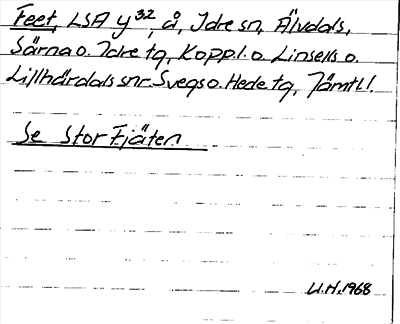 Feet, LSA y 32, å, Idre sn, Älvdals,
Särna o. Idre tg, Koppl. o. Linsells o.
Lillhärdals snr. Svegs o. Hede tg, Jämtl l.
Se Stor Fjäten
U.H. 1968